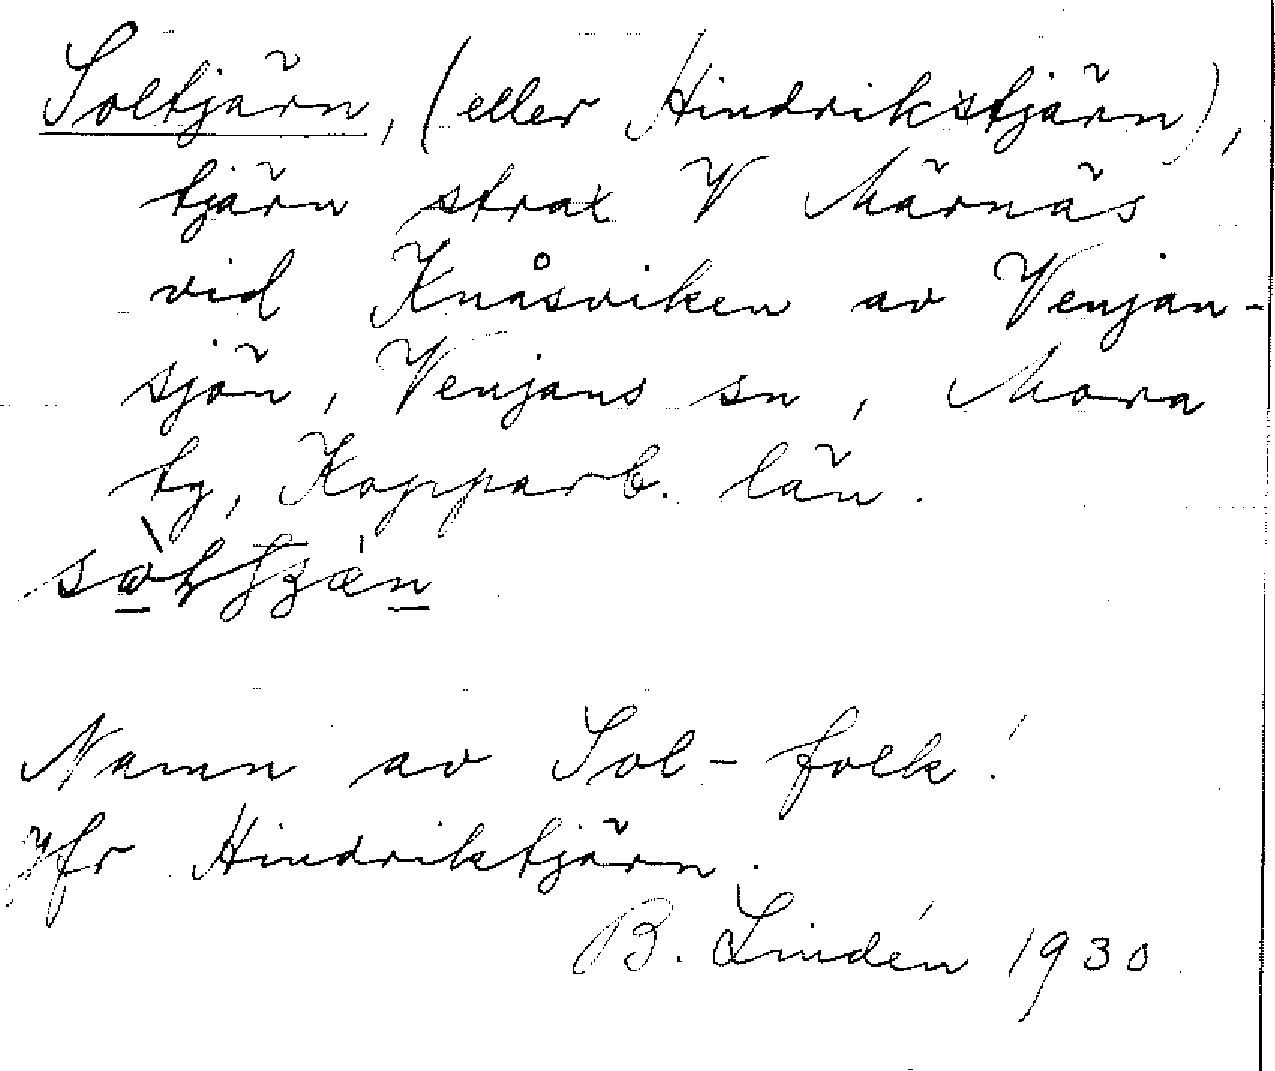 Soltjärn, (eller Hindrikstjärn),
tjärn strax V Märnäs
vid Knåsviken av Venjan-
sjön, Venjans sn, Mora
tg, Kopparb. län.
Namn av Sol-folk!
Jfr Hindriktjärn.
B. Lindén 1930